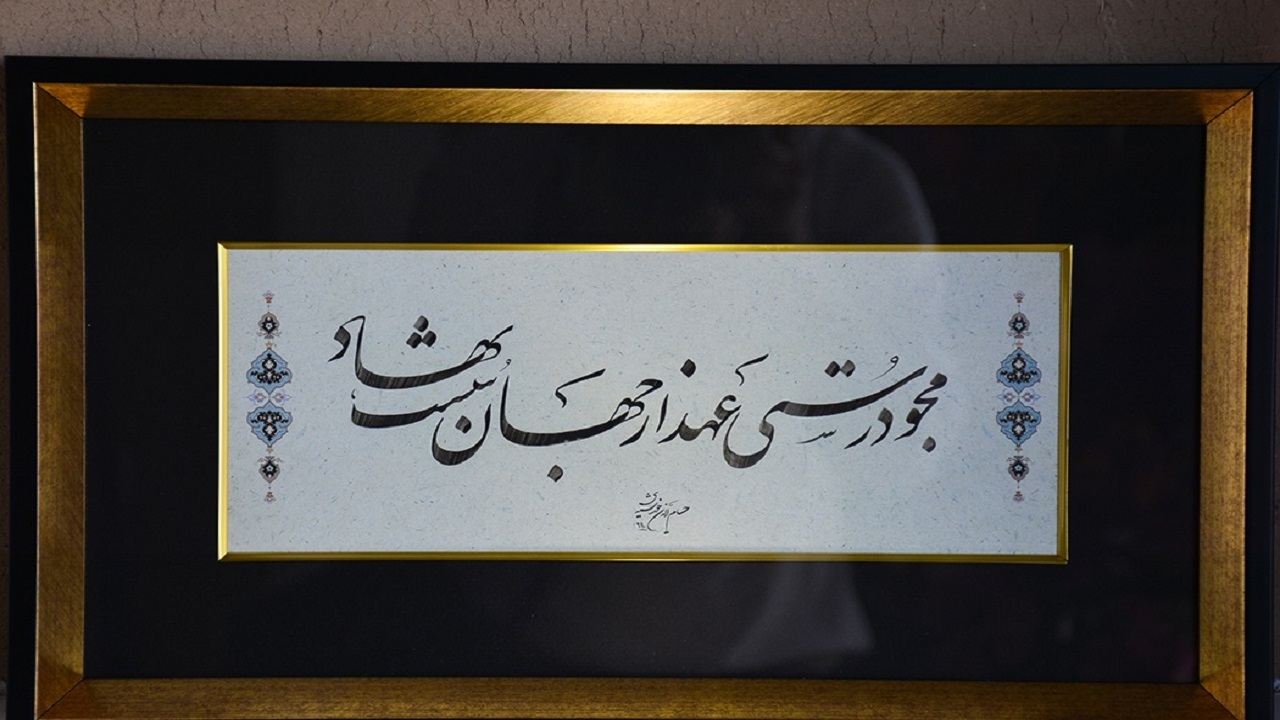 مجو درستی عهد از جهان سست نهاد